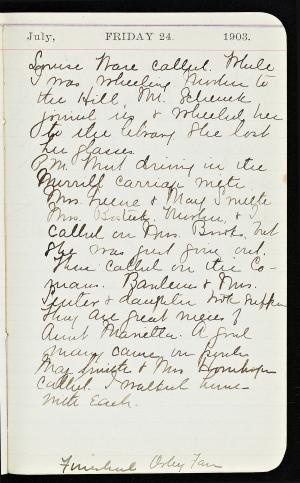 July, FRIDAY 24. 1903.
Louise Ware called. While
I was wheeling Mother to
the Hill, Mr. Schenck
joined us & wheeled her
to the library. She lost
her glasses.
P.M. Went driving in the
Murrill carriage with
Mrs. Greene & May Smith
Mrs. Mother, &
called on Mrs. Brooks, but
she was just going out.
Then called on the Co-
mans. & Mrs.
& daughter took supper
They are great nieces of
Aunt Marietta. A good
many came in
May Smith & Mrs.
called. I walked home
with each.
Finished